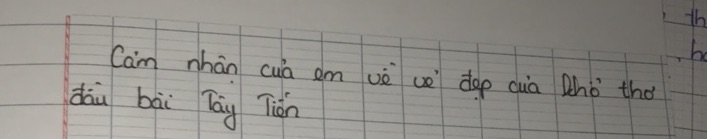 th
Cảm nhận của em về vẻ đẹp của khổ thơ
đầu bài Tây Tiến